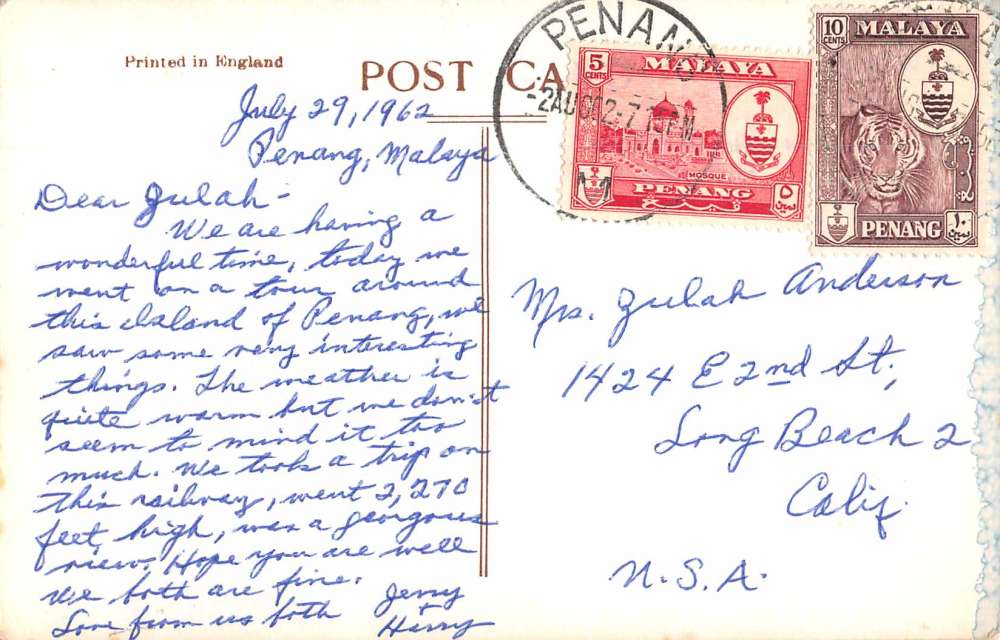 Printed in England
POST CA
PENANG
-2AUG62-715PM
5 CENTS
MALAYA
MOSQUE
PENANG
٥ سين
10 CENTS
MALAYA
PENANG
١٠ سين
July 29, 1962
Penang, Malaya
Dear Zulah -
We are having a
wonderful time, today we
went on a tour around
this island of Penang, we
saw some very interesting
things. The weather is
quite warm but we don't
seem to mind it too
much. We took a trip on
this railway, went 2,270
feet high, was a georgous
view. Hope you are well
We both are fine.
Love from us both
Jerry
Harry
Mrs. Zulah Anderson
1424 E 2nd St.,
Long Beach 2
Calif.
U.S.A.